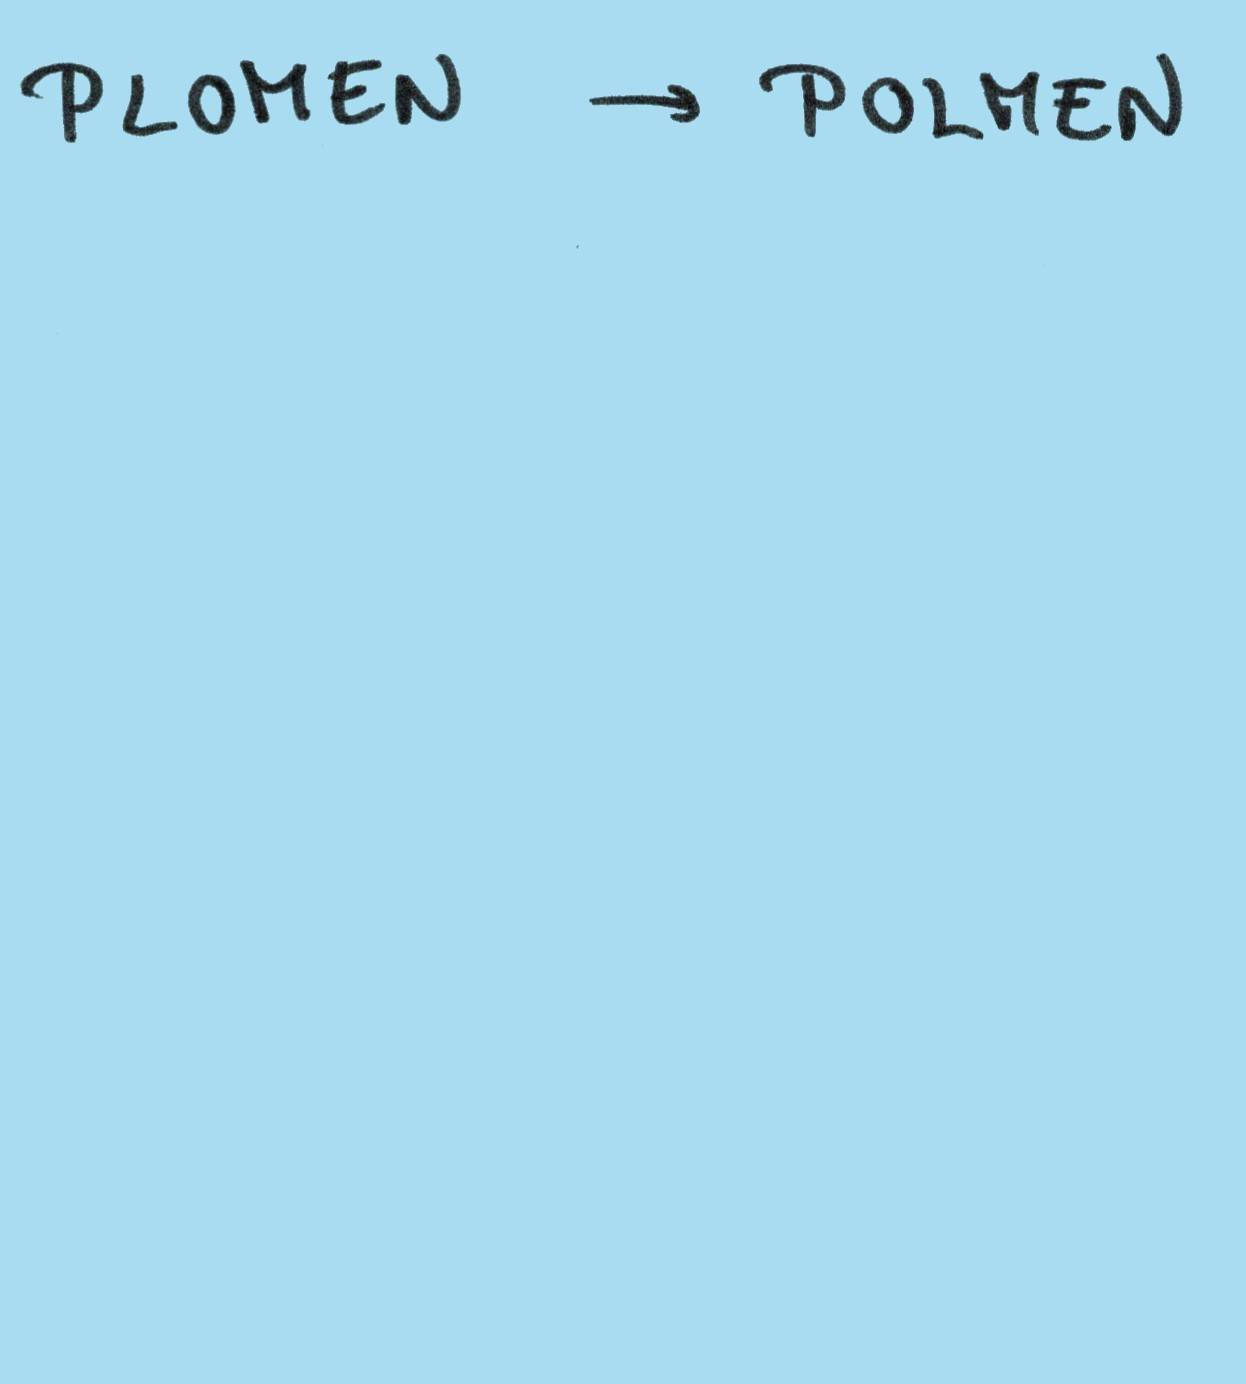 PLOMEN → POLMEN